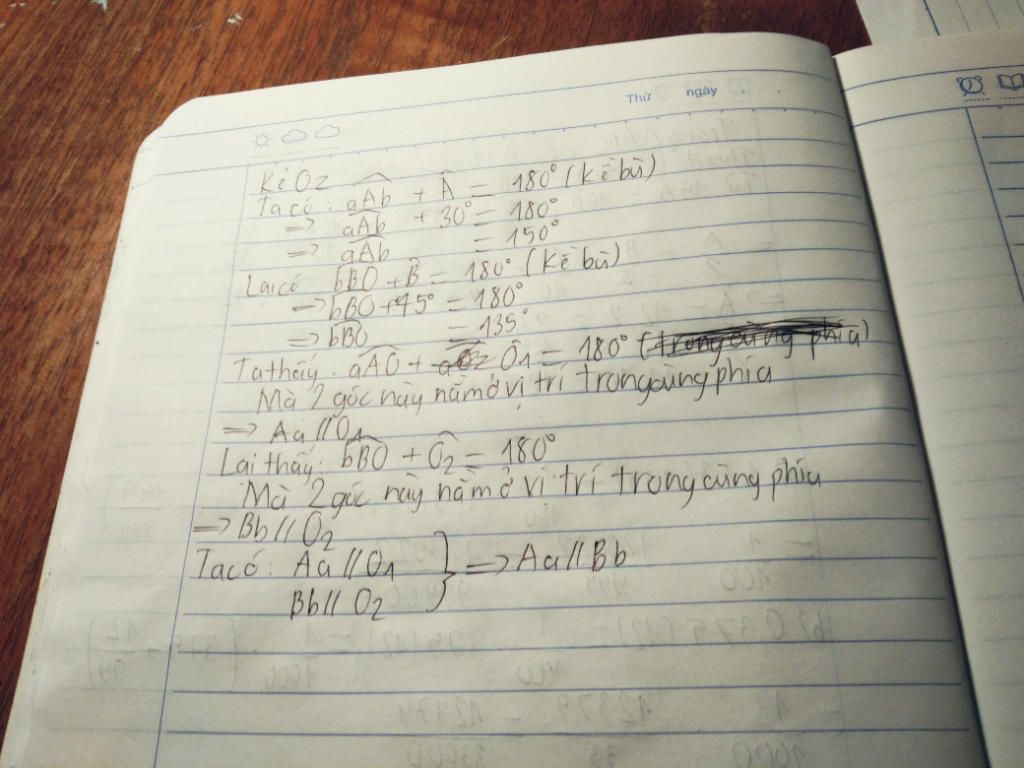 Thứ ngày
Kẻ Oz
Ta có: aAb + Â = 180° (kề bù)
=> aAb + 30° = 180°
=> aAb = 150°
Lại có: bBO + B̂ = 180° (kề bù)
=> bBO + 45° = 180°
=> bBO = 135°
Ta thấy: aAO + Ô1 = 180° (trong cùng phía)
Mà 2 góc này nằm ở vị trí trong cùng phía
=> Aa // O1
Lại thấy: bBO + Ô2 = 180°
Mà 2 góc này nằm ở vị trí trong cùng phía
=> Bb // O2
Ta có: Aa // O1 } => Aa // Bb
Bb // O2